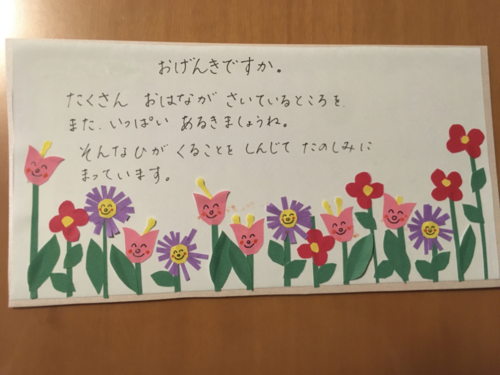 おげんきですか。
たくさん おはなが さいているところを
また、いっぱい あるきましょうね。
そんなひが くることを しんじて たのしみに
まっています。